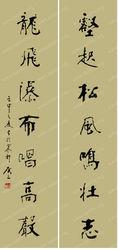 壑起松風鳴壯志
龍飛瀑布唱高聲